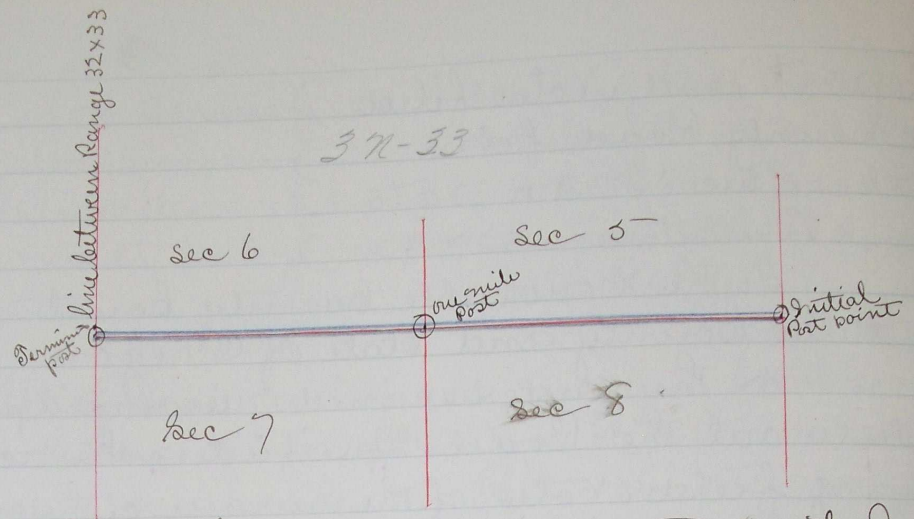 line between Range 32x33
3 N-33
Sec 6
Sec 5
one mile
Post
Initial
Post point
Post
Sec 7
Sec 8